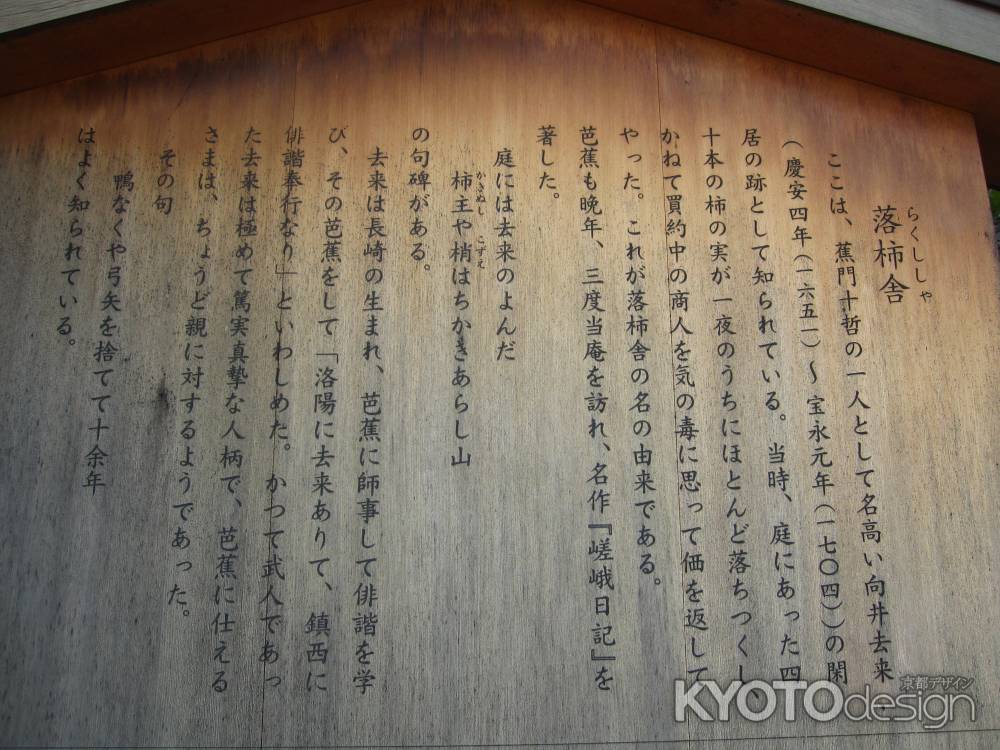 らくししゃ
落柿舎
ここは、蕉門十哲の一人として名高い向井去来
(慶安四年(一六五一)〜宝永元年(一七〇四)の閑
居の跡として知られている。当時、庭にあった四
十本の柿の実が一夜のうちにほとんど落ちつくし
かねて買約中の商人を気の毒に思って価を返して
やった。これが落柿舎の名の由来である。
芭蕉も晩年、三度当庵を訪れ、名作『嵯峨日記』を
著した。
庭には去来のよんだ
かきぬし こずえ
柿主や梢はちかきあらし山
の句碑がある。
去来は長崎の生まれ、芭蕉に師事して俳諧を学
び、その芭蕉をして「洛陽に去来ありて、鎮西に
俳諧奉行なり」といわしめた。かつて武人であっ
た去来は極めて篤実真摯な人柄で、芭蕉に仕える
さまは、ちょうど親に対するようであった。
その句
鴨なくや弓矢を捨てて十余年
はよく知られている。
KYOTOdesign
京都デザイン